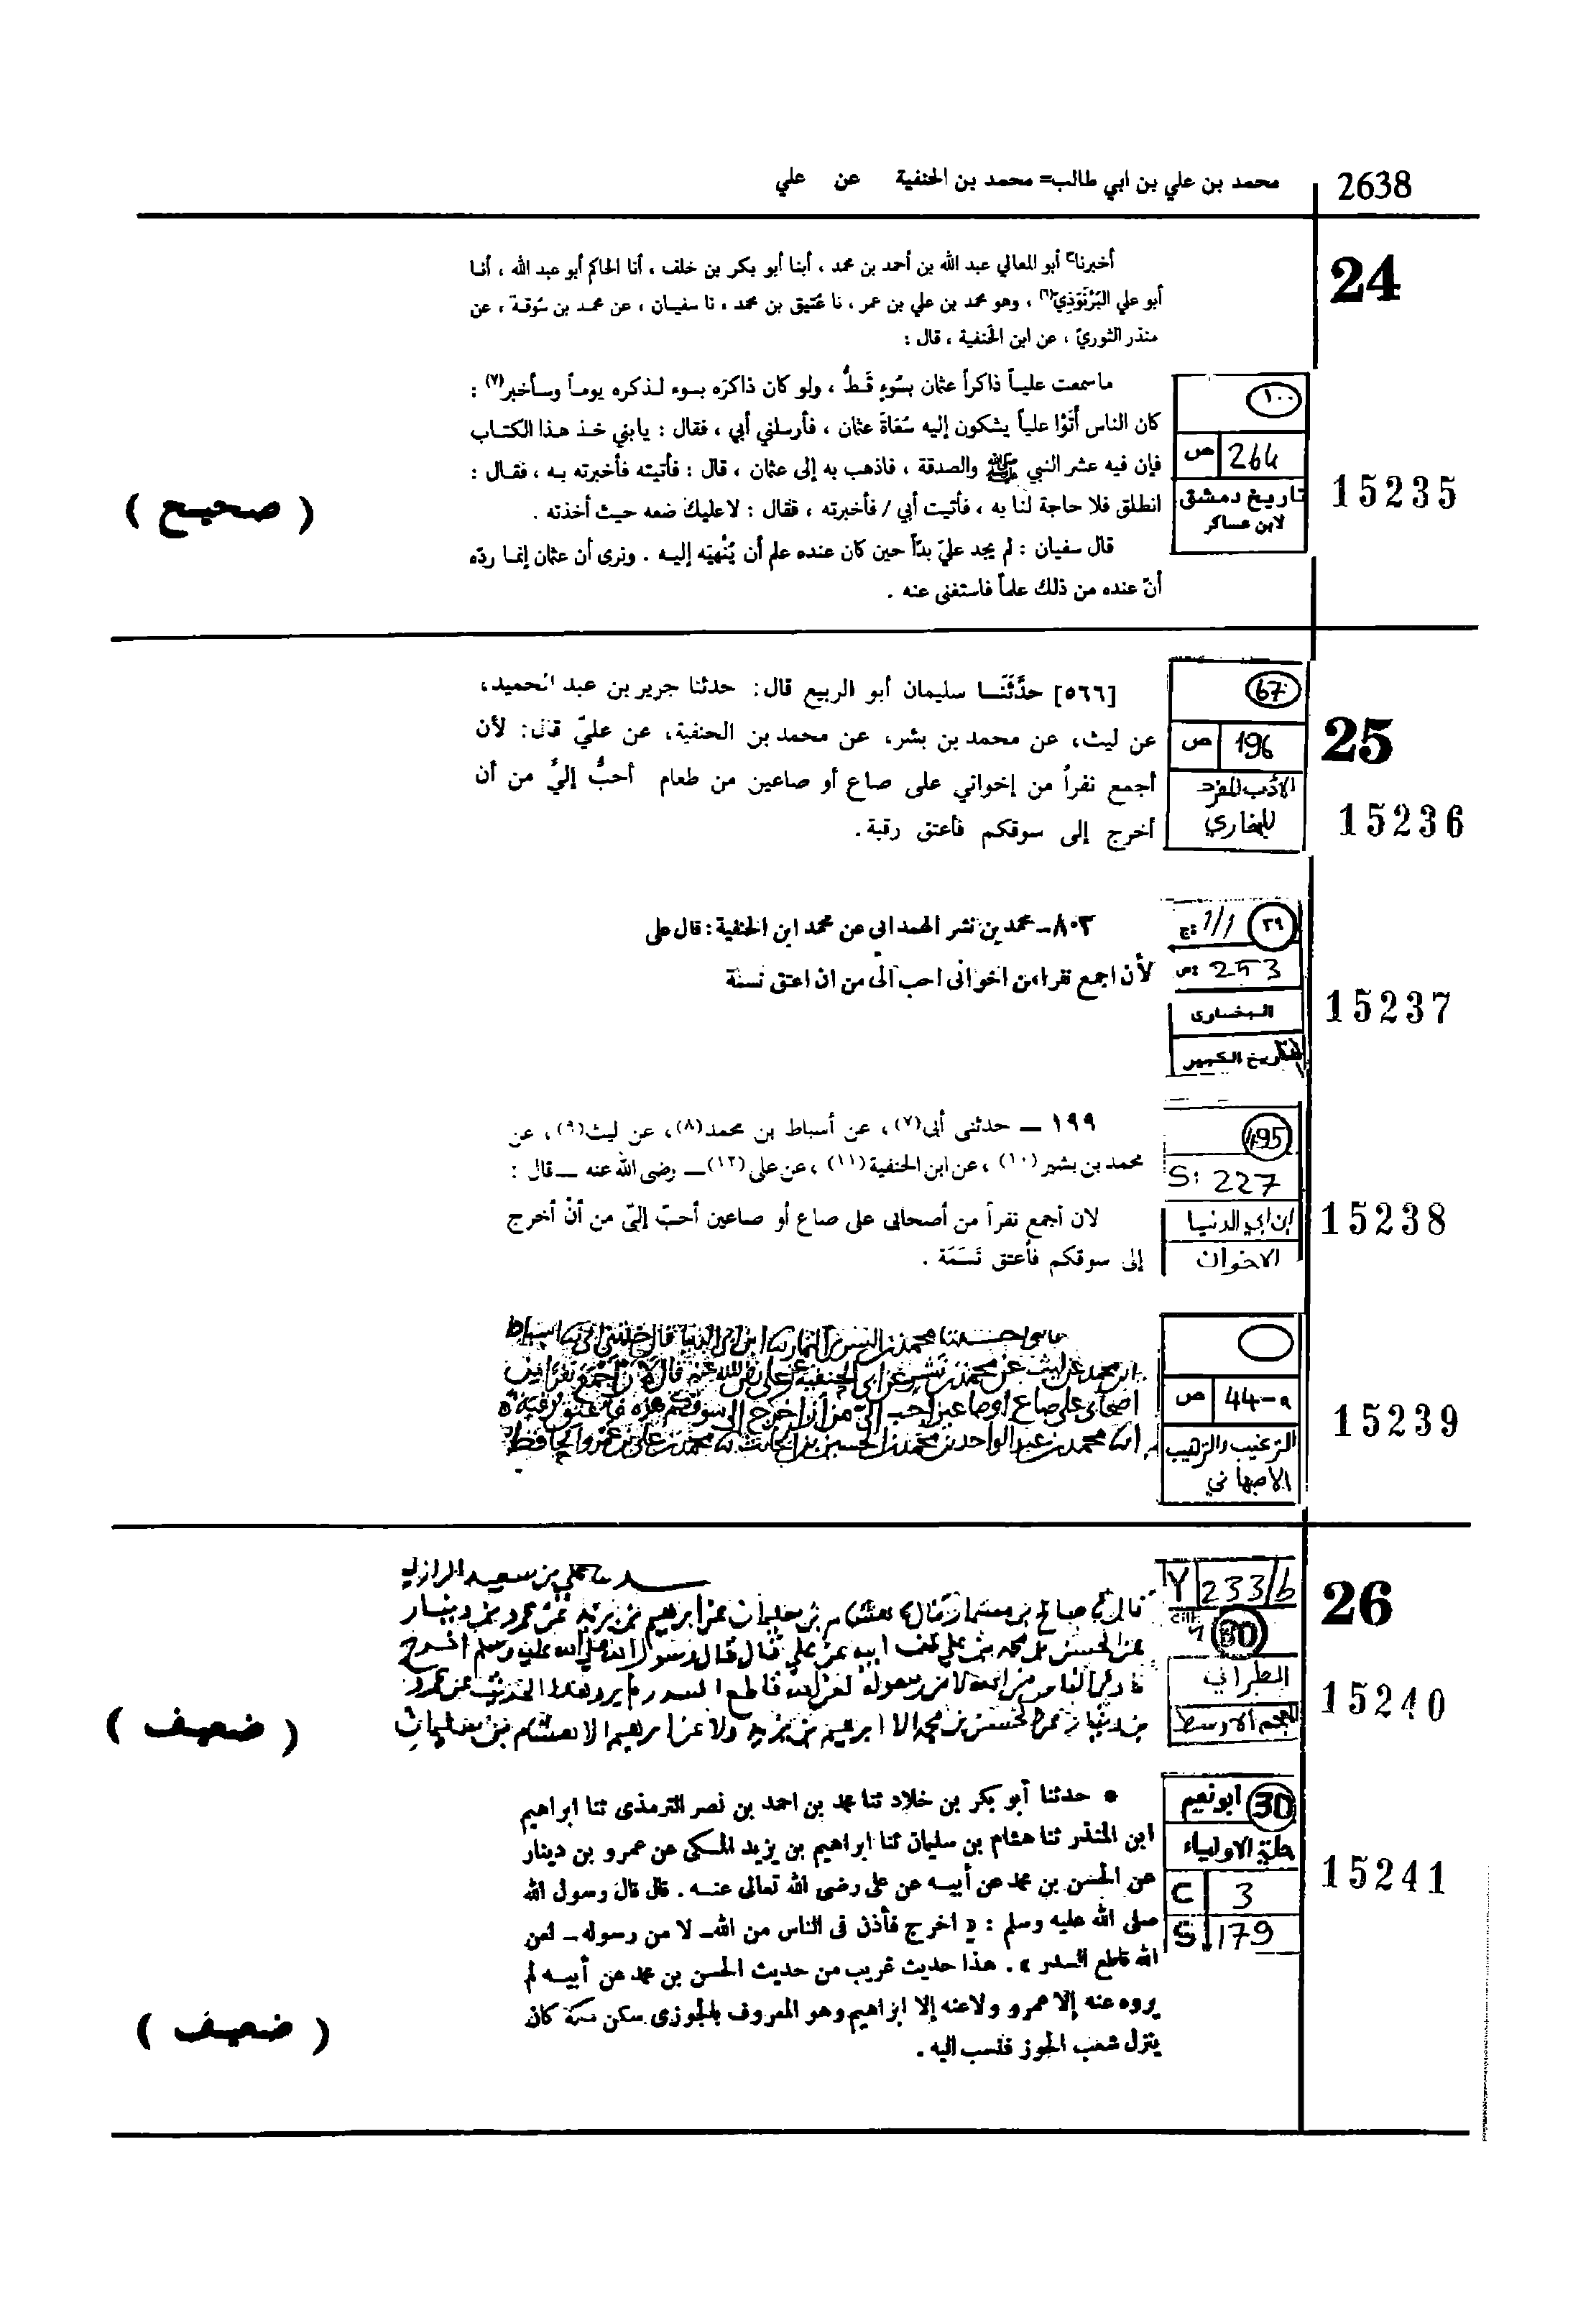 2638
محمد بن علي بن ابي طالب= محمد بن الحنفية عن علي
24
أخبرنا أبو المعالي عبد الله بن أحمد بن محمد ، أبنا أبو بكر بن خلف ، أنا الحاكم أبو عبد الله ، أنا
أبو علي البَرْنَوْذِيّ(٦) ، وهو محمد بن علي بن عمر ، نا عَتيق بن محمد ، نا سفيان ، عن محمد بن سُوقة ، عن
منذر الثوريّ ، عن ابن الحَنفية ، قال :
ماسمعت علياً ذاكراً عثمان بسُوءٍ قَطُّ ، ولو كان ذاكرَه بسوء لذكره يوماً وسأخبر(٧) :
كان الناس أَتَوْا علياً يشكون إليه سُعَاةَ عثمان ، فأرسلني أبي ، فقال : يابني خذ هذا الكتاب
فإن فيه عشر النبي ﷺ والصدقة ، فاذهب به إلى عثمان ، قال : فأتيته فأخبرته به ، فقال :
انطلق فلا حاجة لنا به ، فأتيت أبي / فأخبرته ، فقال : لاعليك ضعه حيث أخذته .
قال سفيان : لم يجد عليّ بدّاً حين كان عنده علم أن يُنْهيَه إليه . ونرى أن عثمان إنما ردّه
أنّ عنده من ذلك علماً فاستغنى عنه .
١٠٠
264 ص
تاريخ دمشق
لابن عساكر
15235
( صحيح )
25
[٥٦٦] حدَّثَنَا سليمان أبو الربيع قال: حدثنا جرير بن عبد الحميد،
عن ليث، عن محمد بن بشر، عن محمد بن الحنفية، عن عليّ قال: لأن
أجمع نفراً من إخواني على صاع أو صاعين من طعام أحبُّ إليَّ من أن
أخرج إلى سوقكم فأعتق رقبة.
67
196 ص
الأدب المفرد
للبخاري
15236
٨٠٣- محمد بن نشر الهمدانى عن محمد ابن الحنفية : قال على
لأن اجمع نفرا من اخوانى احب الىّ من ان اعتق نسمة
٣٩ 1/1 ج:
253 ص:
البخارى
التاريخ الكبير
15237
١٩٩ ــ حدثنى أبى(٧) ، عن أسباط بن محمد(٨)، عن ليث(٩) ، عن
محمد بن بشير(١٠) ، عن ابن الحنفية(١١) ، عن على(١٢)ــ رضى الله عنه ــ قال :
لان أجمع نفراً من أصحابى على صاع أو صاعين أحبّ إلىّ من أنْ أخرج
إلى سوقكم فأعتق نَسَمَة .
495
S: 227
ابن ابي الدنيا
الاخوان
15238
ابن محمد عن ليث عن محمد بن نشر عن ابن الحنفية عن على رضى الله عنه قال لان أجمع نفرا من
اصحابى على صاع او صاعين احب الى من أن اخرج الى سوقكم هذه فاعتق رقبة
محمد بن عبد الواحد بن محمد
44-a ص
الترغيب والترهيب
الاصبهاني
15239
26
علي بن سعيد الرازي
قال صالح بن مسمار قال هشام بن سليمان عن ابرهيم بن يزيد عن عمرو بن دينار
عن الحسن بن محمد بن علي عن ابيه عن علي قال قال رسول الله صلى الله عليه وسلم اخرج
فاذن في الناس من الله لا من رسوله لعن الله قاطع السدر لم يرو هذا الحديث عن عمرو
بن دينار عن الحسن بن محمد الا ابرهيم بن يزيد ولا عن ابرهيم الا هشام بن سليمان
233/b
30
الطبراني
المعجم الاوسط
15240
( ضعيف )
* حدثنا أبو بكر بن خلاد ثنا محمد بن احمد بن نصر الترمذى ثنا ابراهيم
ابن المنذر ثنا هشام بن سليمان ثنا ابراهيم بن يزيد المكى عن عمرو بن دينار
عن الحسن بن محمد عن أبيه عن على رضى الله تعالى عنه . قال قال رسول الله
صلى الله عليه وسلم : « اخرج فأذن فى الناس من الله ـ لا من رسوله ـ لعن
الله قاطع السدر » . هذا حديث غريب من حديث الحسن بن محمد عن أبيه لم
يروه عنه إلا عمرو ولاعنه إلا ابراهيم وهو المعروف بالجوزى سكن مكة كان
ينزل شعب الجوز فنسب اليه .
30 ابو نعيم
حلية الاولياء
C 3
S 179
15241
( ضعيف )